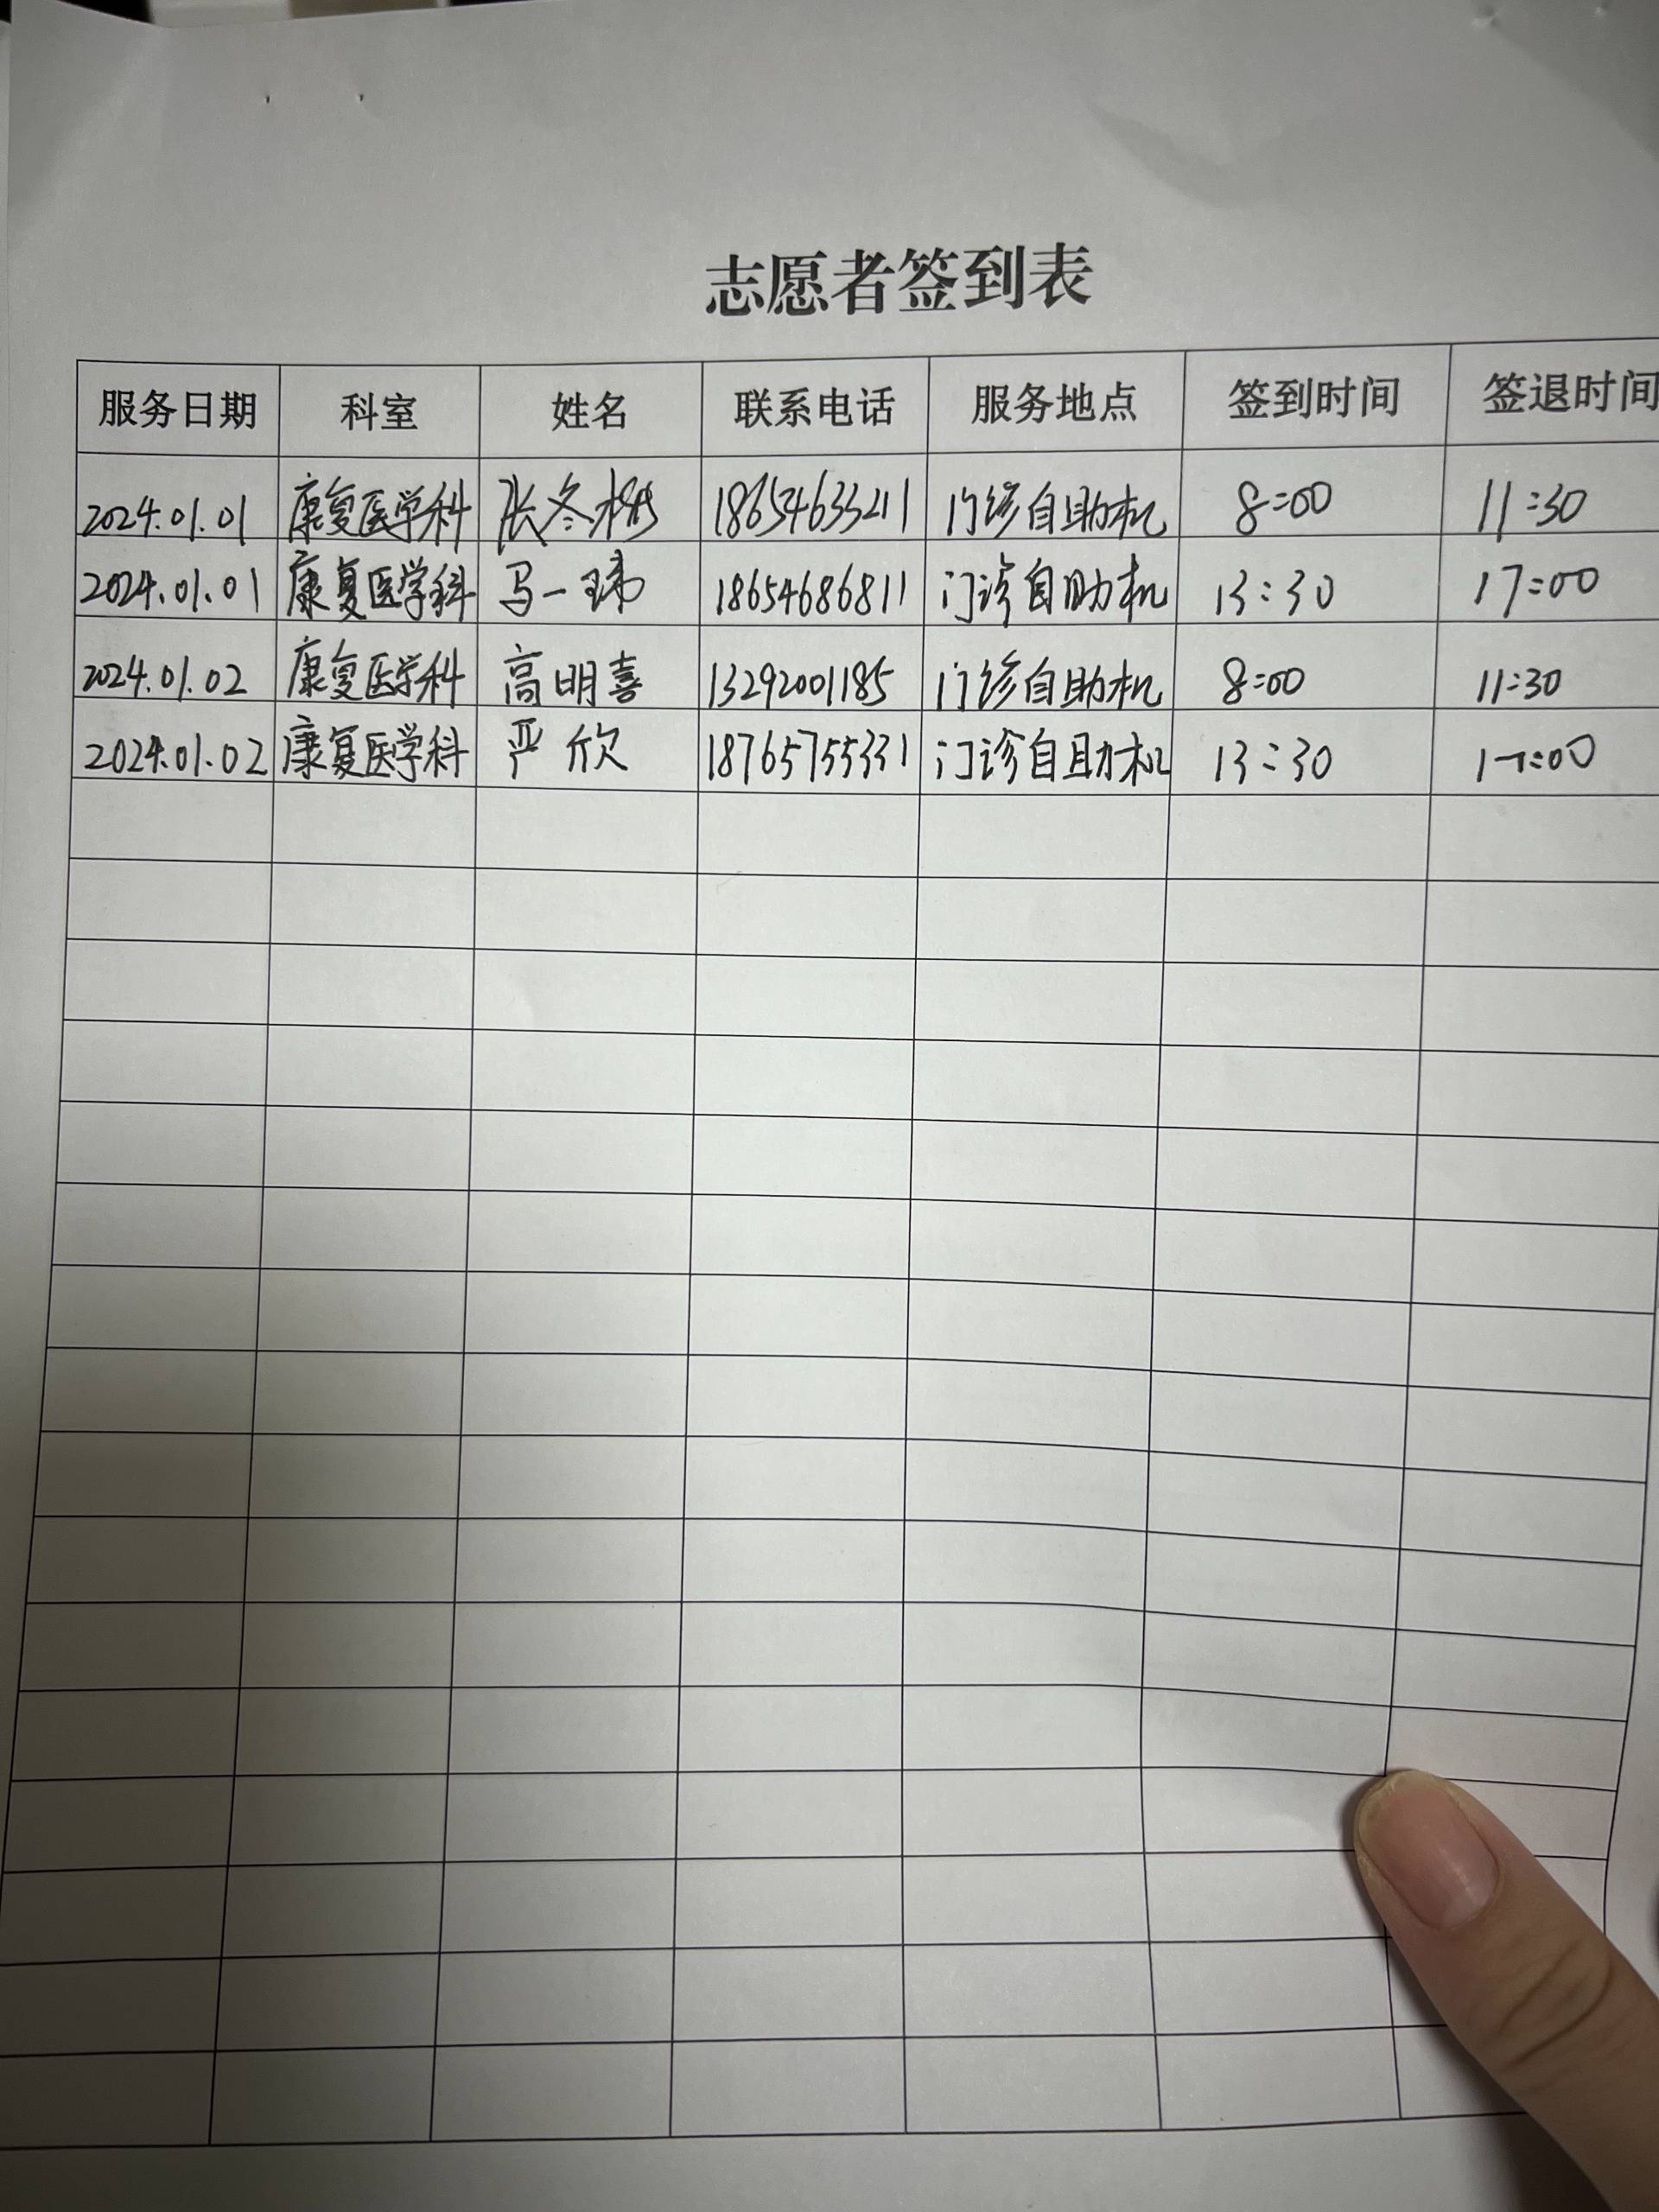 志愿者签到表
服务日期 科室 姓名 联系电话 服务地点 签到时间 签退时间
2024.01.01 康复医学科 张冬梅 18654633211 门诊自助机 8:00 11:30
2024.01.01 康复医学科 马一 18654686811 门诊自助机 13:30 17:00
2024.01.02 康复医学科 高明喜 13292001185 门诊自助机 8:00 11:30
2024.01.02 康复医学科 严欣 18765755331 门诊自助机 13:30 17:00